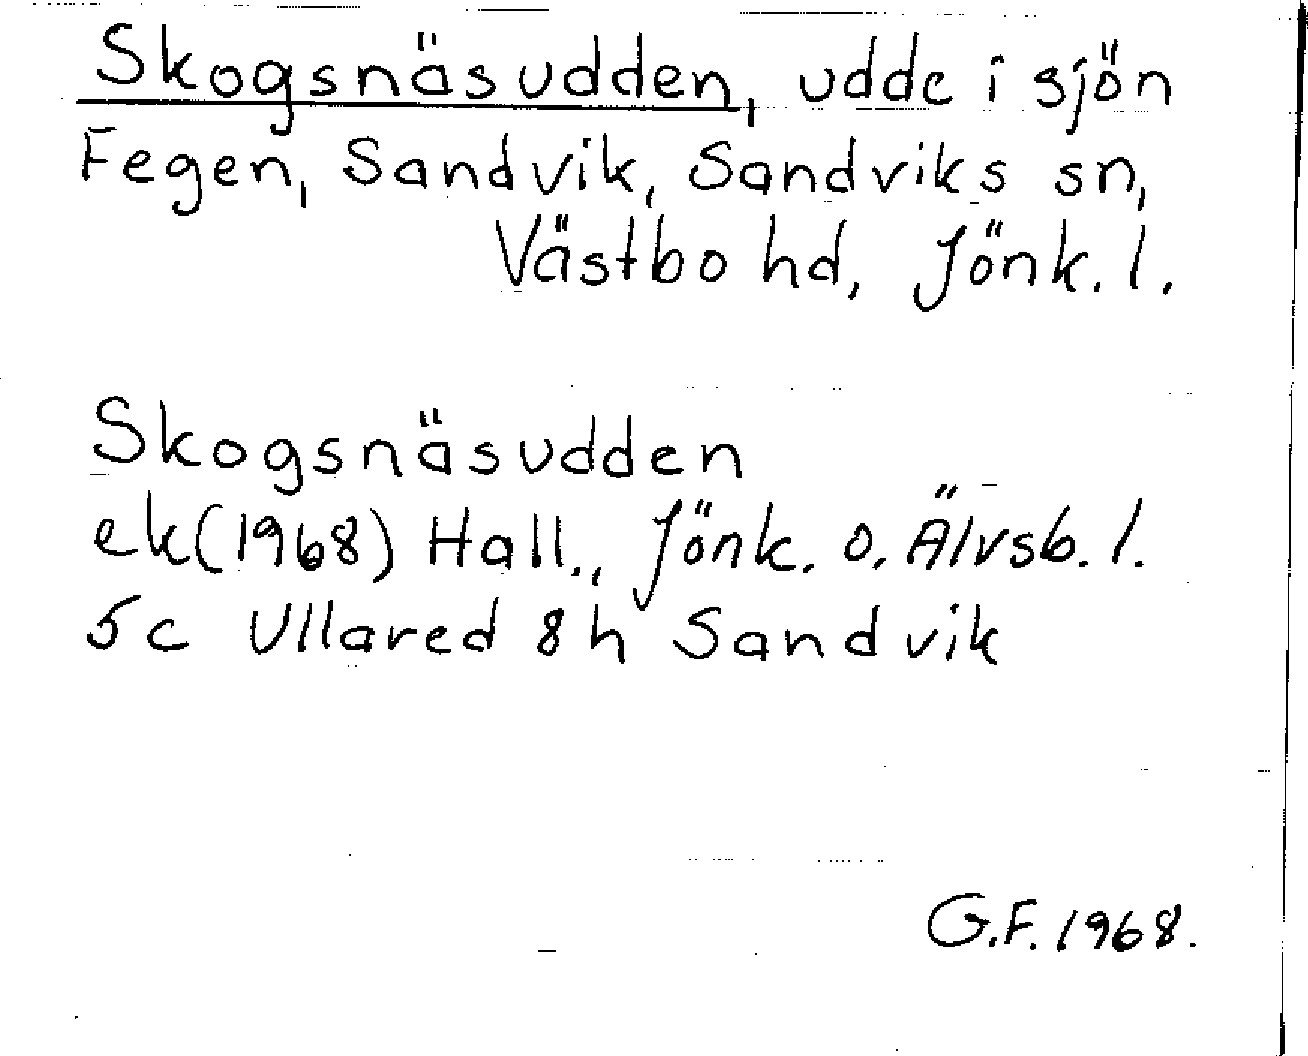 Skogsnäsudden, udde i sjön
Fegen, Sandvik, Sandviks sn,
Västbo hd, Jönk. l.
Skogsnäsudden
ek (1968) Hall., Jönk. o. Älvsb. l.
5c Ullared 8h Sandvik
G.F. 1968.